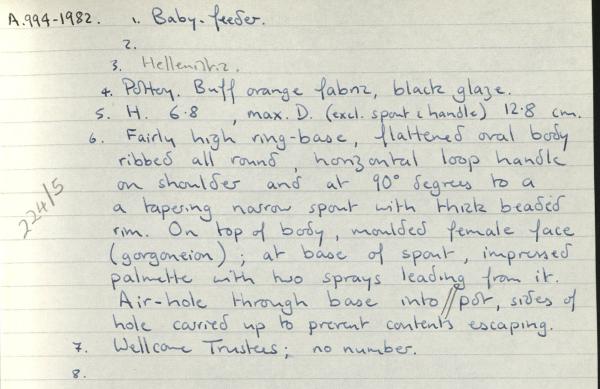 A.994-1982. 1. Baby-feeder.
2.
3. Hellenistic.
4. Pottery. Buff orange fabric, black glaze.
5. H. 6.8 , max. D. (excl. spout & handle) 12.8 cm.
6. Fairly high ring-base, flattened oval body
ribbed all round, horizontal loop handle
on shoulder and at 90° degrees to a
a tapering narrow spout with thick beaded
rim. On top of body, moulded female face
(gorgoneion); at base of spout, impressed
palmette with two sprays leading from it.
Air-hole through base into // pot, sides of
hole carried up to prevent contents escaping.
7. Wellcome Trustees; no number.
8.
224/5